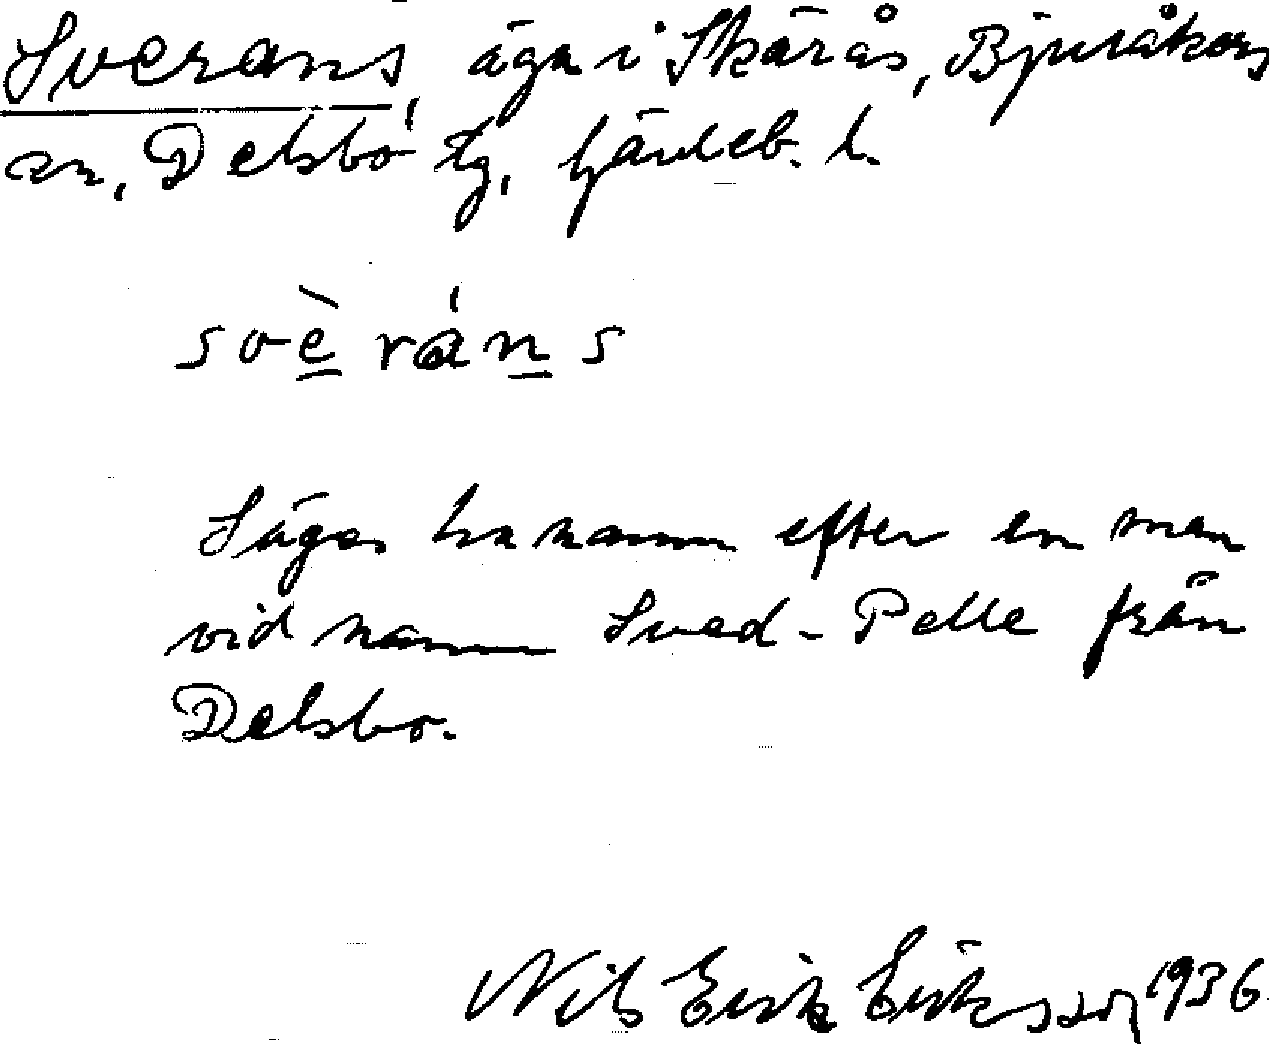 Sverans, äga i Skärås, Bjuråkers
sn, Delsbo tg, Gävleb. l.
svè ráns
Säges ha namn efter en man
vid namn Sved-Pelle från
Delsbo.
Nils Erik Eriksson 1936